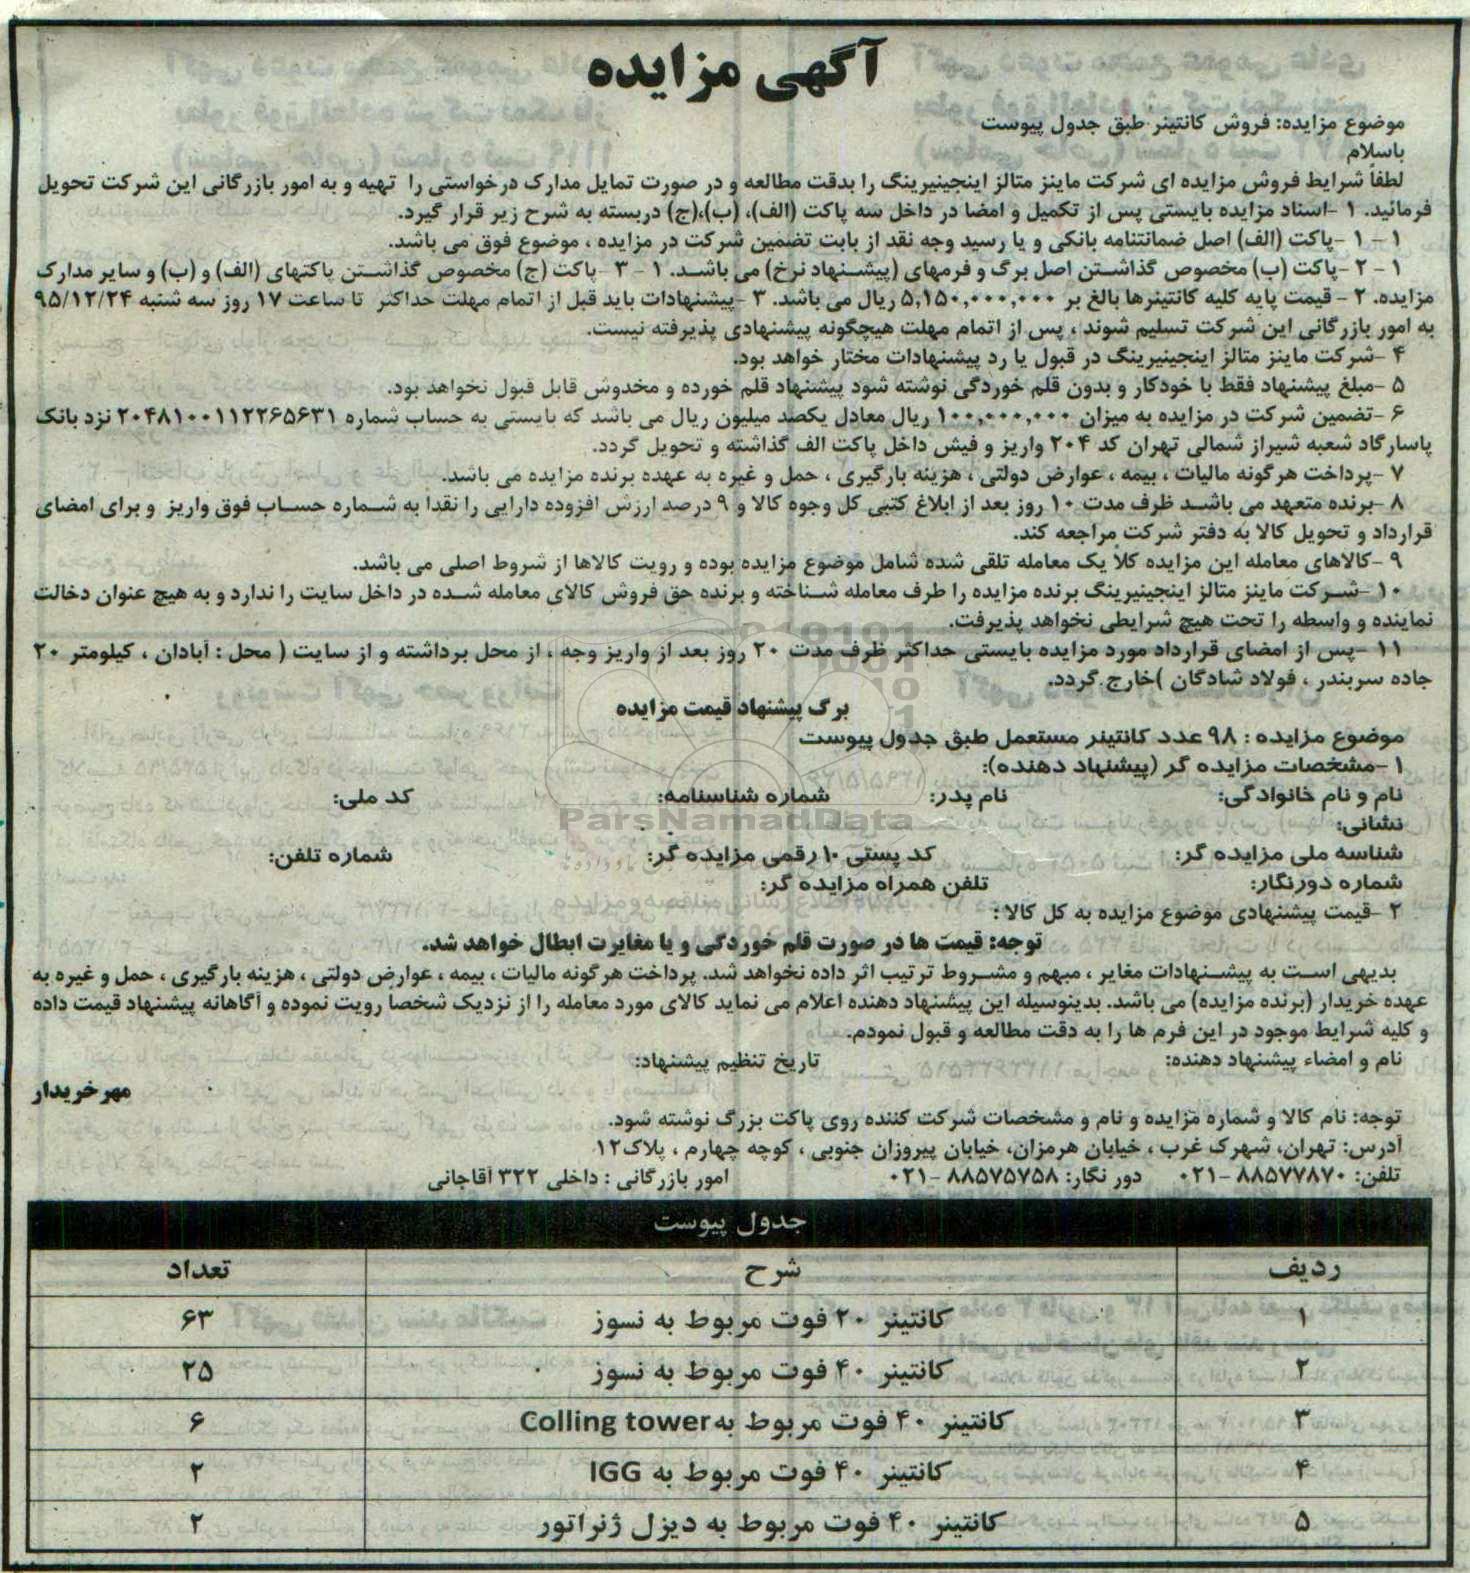 آگهی مزایده
موضوع مزایده: فروش کانتینر طبق جدول پیوست
باسلام
لطفاً شرایط فروش مزایده ای شرکت ماینز متالز اینجینیرینگ را بدقت مطالعه و در صورت تمایل مدارک درخواستی را تهیه و به امور بازرگانی این شرکت تحویل
فرمائید. ۱ -اسناد مزایده بایستی پس از تکمیل و امضا در داخل سه پاکت (الف)، (ب)،(ج) دربسته به شرح زیر قرار گیرد.
۱ - ۱ -پاکت (الف) اصل ضمانتنامه بانکی و یا رسید وجه نقد از بابت تضمین شرکت در مزایده ، موضوع فوق می باشد.
۱ - ۲ -پاکت (ب) مخصوص گذاشتن اصل برگ و فرمهای (پیشنهاد نرخ) می باشد. ۱ - ۳ -پاکت (ج) مخصوص گذاشتن پاکتهای (الف) و (ب) و سایر مدارک
مزایده. ۲ - قیمت پایه کلیه کانتینرها بالغ بر ۵,۱۵۰,۰۰۰,۰۰۰ ریال می باشد. ۳ -پیشنهادات باید قبل از اتمام مهلت حداکثر تا ساعت ۱۷ روز سه شنبه ۹۵/۱۲/۲۴
به امور بازرگانی این شرکت تسلیم شوند ، پس از اتمام مهلت هیچگونه پیشنهادی پذیرفته نیست.
۴ -شرکت ماینز متالز اینجینیرینگ در قبول یا رد پیشنهادات مختار خواهد بود.
۵ -مبلغ پیشنهاد فقط با خودکار و بدون قلم خوردگی نوشته شود پیشنهاد قلم خورده و مخدوش قابل قبول نخواهد بود.
۶ -تضمین شرکت در مزایده به میزان ۱۰۰,۰۰۰,۰۰۰ ریال معادل یکصد میلیون ریال می باشد که بایستی به حساب شماره ۲۰۴۸۱۰۰۱۱۲۲۶۵۶۳۱ نزد بانک
پاسارگاد شعبه شیراز شمالی تهران کد ۲۰۴ واریز و فیش داخل پاکت الف گذاشته و تحویل گردد.
۷ -پرداخت هرگونه مالیات ، بیمه ، عوارض دولتی ، هزینه بارگیری ، حمل و غیره به عهده برنده مزایده می باشد.
۸ -برنده متعهد می باشد ظرف مدت ۱۰ روز بعد از ابلاغ کتبی کل وجوه کالا و ۹ درصد ارزش افزوده دارایی را نقدا به شماره حساب فوق واریز و برای امضای
قرارداد و تحویل کالا به دفتر شرکت مراجعه کند.
۹ -کالاهای معامله این مزایده کلاً یک معامله تلقی شده شامل موضوع مزایده بوده و رویت کالاها از شروط اصلی می باشد.
۱۰ -شرکت ماینز متالز اینجینیرینگ برنده مزایده را طرف معامله شناخته و برنده حق فروش کالای معامله شده در داخل سایت را ندارد و به هیچ عنوان دخالت
نماینده و واسطه را تحت هیچ شرایطی نخواهد پذیرفت.
۱۱ -پس از امضای قرارداد مورد مزایده بایستی حداکثر ظرف مدت ۲۰ روز بعد از واریز وجه ، از محل برداشته و از سایت ( محل : آبادان ، کیلومتر ۲۰
جاده سربندر ، فولاد شادگان )خارج گردد.
برگ پیشنهاد قیمت مزایده
موضوع مزایده : ۹۸ عدد کانتینر مستعمل طبق جدول پیوست
۱ -مشخصات مزایده گر (پیشنهاد دهنده):
نام و نام خانوادگی: نام پدر: شماره شناسنامه: کد ملی:
نشانی:
شناسه ملی مزایده گر: کد پستی ۱۰ رقمی مزایده گر: شماره تلفن:
شماره دورنگار: تلفن همراه مزایده گر:
۲ -قیمت پیشنهادی موضوع مزایده به کل کالا :
توجه: قیمت ها در صورت قلم خوردگی و یا مغایرت ابطال خواهد شد.
بدیهی است به پیشنهادات مغایر ، مبهم و مشروط ترتیب اثر داده نخواهد شد. پرداخت هرگونه مالیات ، بیمه ، عوارض دولتی ، هزینه بارگیری ، حمل و غیره به
عهده خریدار (برنده مزایده) می باشد. بدینوسیله این پیشنهاد دهنده اعلام می نماید کالای مورد معامله را از نزدیک شخصا رویت نموده و آگاهانه پیشنهاد قیمت داده
و کلیه شرایط موجود در این فرم ها را به دقت مطالعه و قبول نمودم.
نام و امضاء پیشنهاد دهنده: تاریخ تنظیم پیشنهاد:
مهر خریدار
توجه: نام کالا و شماره مزایده و نام و مشخصات شرکت کننده روی پاکت بزرگ نوشته شود.
آدرس: تهران، شهرک غرب ، خیابان هرمزان، خیابان پیروزان جنوبی ، کوچه چهارم ، پلاک۱۲
تلفن: ۸۸۵۷۷۸۷۰ -۰۲۱ دور نگار: ۸۸۵۷۵۷۵۸ -۰۲۱ امور بازرگانی : داخلی ۳۲۲ آقاجانی
جدول پیوست
ردیف شرح تعداد
۱ کانتینر ۲۰ فوت مربوط به نسوز ۶۳
۲ کانتینر ۴۰ فوت مربوط به نسوز ۲۵
۳ کانتینر ۴۰ فوت مربوط به Colling tower ۶
۴ کانتینر ۴۰ فوت مربوط به IGG ۲
۵ کانتینر ۴۰ فوت مربوط به دیزل ژنراتور ۲
ParsNamadData